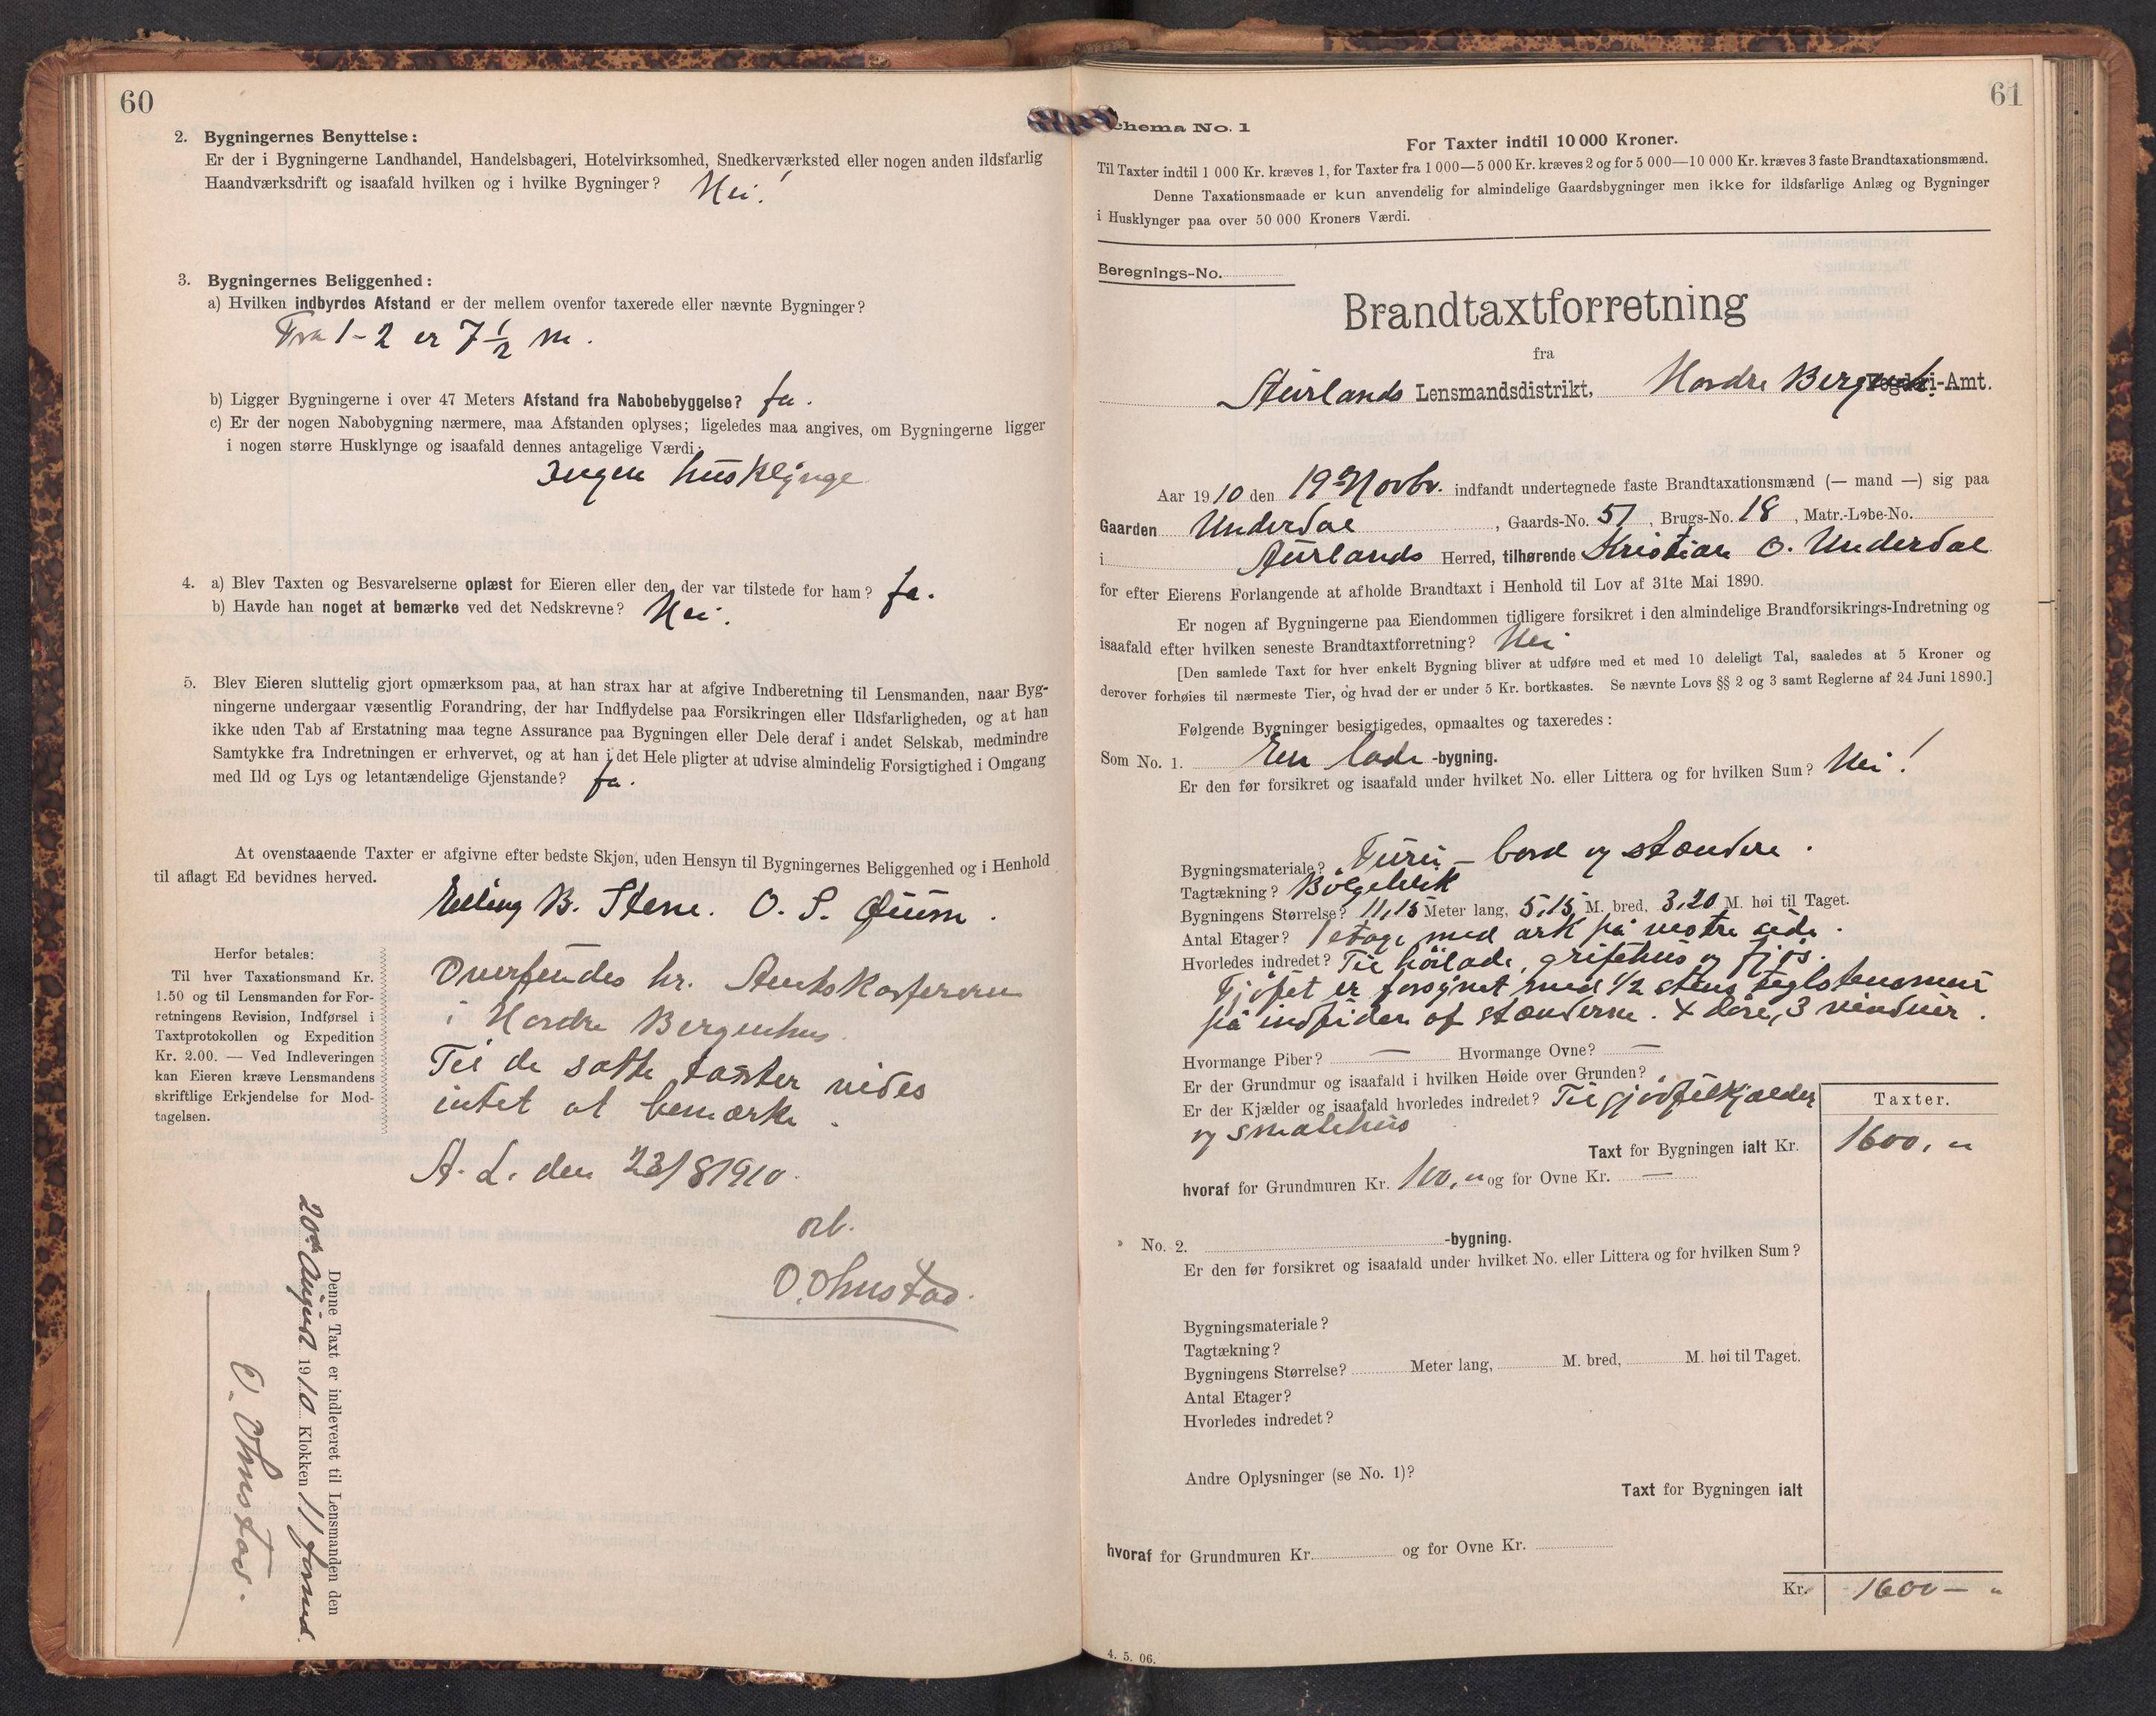 60
2. Bygningernes Benyttelse:
Er der i Bygningerne Landhandel, Handelsbageri, Hotelvirksomhed, Snedkerværksted eller nogen anden ildsfarlig
Haandværksdrift og isaafald hvilken og i hvilke Bygninger? Nei!
3. Bygningernes Beliggenhed:
a) Hvilken indbyrdes Afstand er der mellem ovenfor taxerede eller nævnte Bygninger?
Fra 1-2 er 7 1/2 m.
b) Ligger Bygningerne i over 47 Meters Afstand fra Nabobebyggelse? Ja.
c) Er der nogen Nabobygning nærmere, maa Afstanden oplyses; ligeledes maa angives, om Bygningerne ligger
i nogen større Husklynge og isaafald dennes antagelige Værdi:
Ingen husklynge
4. a) Blev Taxten og Besvarelserne oplæst for Eieren eller den, der var tilstede for ham? Ja.
b) Havde han noget at bemærke ved det Nedskrevne? Nei.
5. Blev Eieren sluttelig gjort opmærksom paa, at han strax har at afgive Indberetning til Lensmanden, naar Byg-
ningerne undergaar væsentlig Forandring, der har Indflydelse paa Forsikringen eller Ildsfarligheden, og at han
ikke uden Tab af Erstatning maa tegne Assurance paa Bygningen eller Dele deraf i andet Selskab, medmindre
Samtykke fra Indretningen er erhvervet, og at han i det Hele pligter at udvise almindelig Forsigtighed i Omgang
med Ild og Lys og letantændelige Gjenstande? Ja.
At ovenstaaende Taxter er afgivne efter bedste Skjøn, uden Hensyn til Bygningernes Beliggenhed og i Henhold
til aflagt Ed bevidnes herved.
Elling B. Stene. O. S. Øium.
Herfor betales:
Til hver Taxationsmand Kr.
1.50 og til Lensmanden for For-
retningens Revision, Indførsel i
Taxtprotokollen og Expedition
Kr. 2.00. — Ved Indleveringen
kan Eieren kræve Lensmandens
skriftlige Erkjendelse for Mod-
tagelsen.
Oversendes hr. Amtskasfereren
i Nordre Bergenhus.
Til de satte taxter vides
intet at bemærke.
A. L. den 23/8 1910.
O. Ohnstad.
Denne Taxt er indleveret til Lensmanden den
20de August 1910 Klokken 11 formd.
O. Ohnstad.
61
Schema No. 1
For Taxter indtil 10 000 Kroner.
Til Taxter indtil 1 000 Kr. kræves 1, for Taxter fra 1 000—5 000 Kr. kræves 2 og for 5 000—10 000 Kr. kræves 3 faste Brandtaxationsmænd.
Denne Taxationsmaade er kun anvendelig for almindelige Gaardsbygninger men ikke for ildsfarlige Anlæg og Bygninger
i Husklynger paa over 50 000 Kroners Værdi.
Beregnings-No.
Brandtaxtforretning
fra
Aurlands Lensmandsdistrikt, Nordre Bergenh. Fogderi-Amt.
Aar 1910 den 19de Novbr. indfandt undertegnede faste Brandtaxationsmænd (— mand —) sig paa
Gaarden Underdal, Gaards-No. 51, Brugs-No. 18, Matr.-Løbe-No.
i Aurlands Herred, tilhørende Kristian O. Underdal
for efter Eierens Forlangende at afholde Brandtaxt i Henhold til Lov af 31te Mai 1890.
Er nogen af Bygningerne paa Eiendommen tidligere forsikret i den almindelige Brandforsikrings-Indretning og
isaafald efter hvilken seneste Brandtaxtforretning? Nei
[Den samlede Taxt for hver enkelt Bygning bliver at udføre med et med 10 deleligt Tal, saaledes at 5 Kroner og
derover forhøies til nærmeste Tier, og hvad der er under 5 Kr. bortkastes. Se nævnte Lovs §§ 2 og 3 samt Reglerne af 24 Juni 1890.]
Følgende Bygninger besigtigedes, opmaaltes og taxeredes:
Som No. 1. En lade-bygning.
Er den før forsikret og isaafald under hvilket No. eller Littera og for hvilken Sum? Nei!
Bygningsmateriale? Furu - bord og stændere.
Tagtækning? Bölgeblik
Bygningens Størrelse? 11,15 Meter lang, 5,15 M. bred, 3,20 M. høi til Taget.
Antal Etager? 1 etage med ark på vestre side.
Hvorledes indredet? Til hölade, grisehus og fjös.
Fjöset er forsynet med 1/2 stens teglstensmur
på indsiden af stænderne. 4 döre, 3 vinduer.
Hvormange Piber? — Hvormange Ovne? —
Er der Grundmur og isaafald i hvilken Høide over Grunden?
Er der Kjælder og isaafald hvorledes indredet? Til gjödselkjælder
og smalehus
Taxter.
Taxt for Bygningen ialt Kr. 1600,"
hvoraf for Grundmuren Kr. 100," og for Ovne Kr. —
No. 2. -bygning.
Er den før forsikret og isaafald under hvilket No. eller Littera og for hvilken Sum?
Bygningsmateriale?
Tagtækning?
Bygningens Størrelse? Meter lang, M. bred, M. høi til Taget.
Antal Etager?
Hvorledes indredet?
Andre Oplysninger (se No. 1)?
Taxt for Bygningen ialt
hvoraf for Grundmuren Kr. og for Ovne Kr.
Kr. 1600 — "
4. 5. 06.